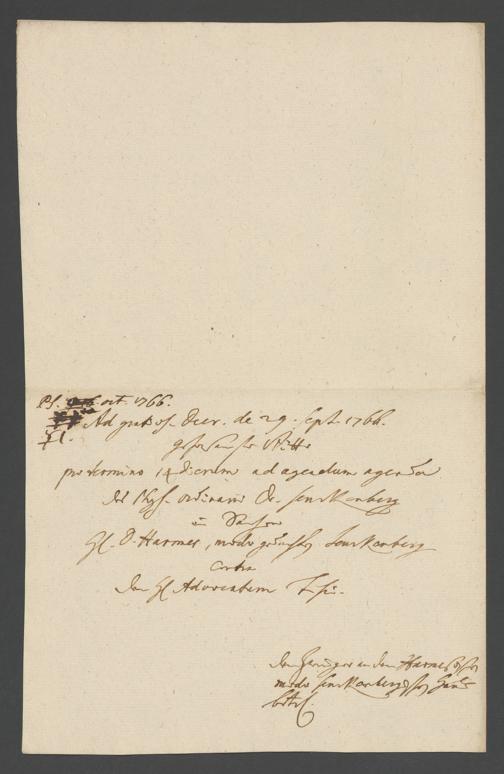 Pf. oct. 1766.
Ad gratios. Decr. de 29. Sept. 1766.
gehorsamste Bitte
pro termino 14 dierum ad agendum agenda
des Phys. ordinarii Dr. Senckenberg
in Sachen
Hl. D. Harmes, modo Senckenberg
Contra
den Hl. Advocatum Fisci.
den in dem Harmes
modo Senckenbergischen
betrf.